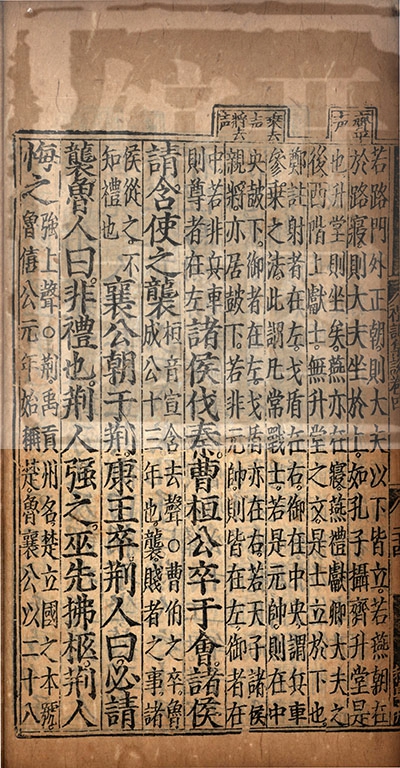 齊平声
乘去声
將去声
若路門外正朝則大夫以下皆立若燕朝在
於路寢則大夫坐於上如孔子攝齊升堂是
也升堂則坐矣燕亦在寢燕禮獻卿大夫之
後西階上獻士無升堂之文是士立於下也
鄭註射者在左戈盾在右御在中央謂兵車
參乘之法此謂凡常戰士若是元帥則在中
央鼓下御者在左戈盾亦在右若天子諸侯
親將亦居鼓下若非元帥則皆在左御者在
中若非兵車則尊者在左諸侯伐秦曹桓公卒于會諸侯
請含使之襲桓音宣含去聲○曹伯之卒魯成公十三年也襲賤者之事諸
侯從之不知禮也襄公朝于荆康王卒荆人曰必請
襲魯人曰非禮也荆人强之巫先拂柩荆人
悔之强上聲○荆禹貢州名楚立國之本號魯僖公元年始稱楚魯襄公以二十八